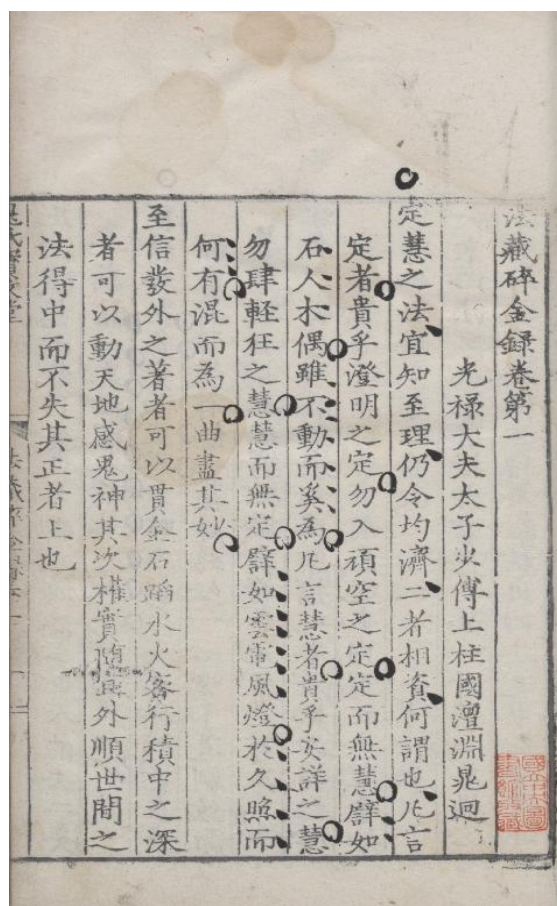 法藏碎金録卷第一
光禄大夫太子少傅上柱國澶淵晁迥
定慧之法宜知至理仍令均濟二者相資何謂也凡言
定者貴乎澄明之定勿入頑空之定定而無慧譬如
石人木偶雖不動而奚為凡言慧者貴乎安詳之慧
勿肆輕狂之慧慧而無定譬如雲電風燈於久照而
何有混而為一曲盡其妙
至信發外之著者可以貫金石蹈水火密行積中之深
者可以動天地感鬼神其次權實隨宜外順世間之
法得中而不失其正者上也